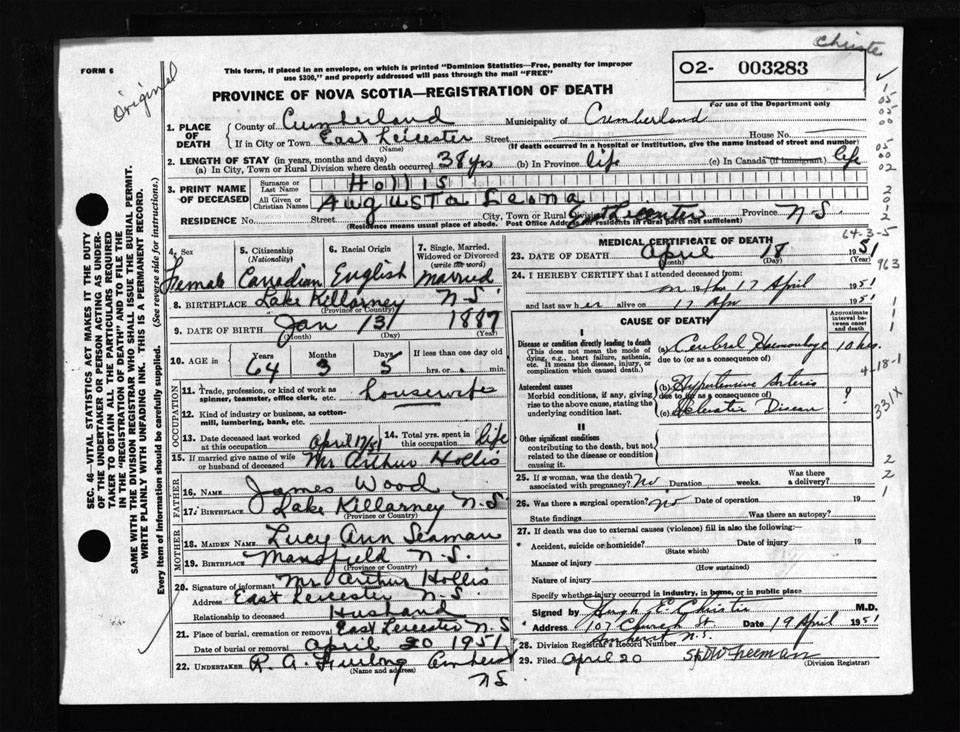 Christie
FORM 6
Original
This form, if placed in an envelope, on which is printed "Dominion Statistics—Free, penalty for improper
use $300," and properly addressed will pass through the mail "FREE"
O2- 003283
For use of the Department only
PROVINCE OF NOVA SCOTIA—REGISTRATION OF DEATH
1. PLACE OF DEATH County of Cumberland Municipality of Cumberland
If in City or Town East Leicester Street House No.
(Name) (If death occurred in a hospital or institution, give the name instead of street and number)
2. LENGTH OF STAY (in years, months and days)
(a) In City, Town or Rural Division where death occurred 38 yrs (b) In Province life (c) In Canada (if immigrant) life
3. PRINT NAME OF DECEASED Surname or Last Name Hollis
All Given or Christian Names Augusta Leona
RESIDENCE No. Street City, Town or Rural Division East Leicester Province N.S.
(Residence means usual place of abode. Post Office Address for residents in rural parts not sufficient)
4. Sex Female
5. Citizenship (Nationality) Canadian
6. Racial Origin English
7. Single, Married, Widowed or Divorced (write the word) Married
8. BIRTHPLACE Lake Killarney N.S.
(Province or Country)
9. DATE OF BIRTH Jan 13 1887
(Month) (Day) (Year)
10. AGE in Years Months Days If less than one day old
64 3 5 hrs. or min.
OCCUPATION
11. Trade, profession, or kind of work as spinner, teamster, office clerk, etc. housewife
12. Kind of industry or business, as cotton-mill, lumbering, bank, etc.
13. Date deceased last worked at this occupation April 17/51
14. Total yrs. spent in this occupation life
15. If married give name of wife or husband of deceased Mr Arthur Hollis
FATHER
16. NAME James Wood
17. BIRTHPLACE Lake Killarney N.S.
(Province or Country)
MOTHER
18. MAIDEN NAME Lucy Ann Seaman
19. BIRTHPLACE Mansfield N.S.
(Province or Country)
20. Signature of informant Mr Arthur Hollis
Address East Leicester N.S.
Relationship to deceased Husband
21. Place of burial, cremation or removal East Leicester N.S
Date of burial or removal April 20 1951
22. UNDERTAKER R. A. Furlong Amherst
(Name and address)
N.S.
MEDICAL CERTIFICATE OF DEATH
23. DATE OF DEATH April 18 1951
(Month) (Day) (Year)
24. I HEREBY CERTIFY that I attended deceased from:
17 April 1951
and last saw her alive on 17 Apr 1951
CAUSE OF DEATH
Approximate interval between onset and death
I
Disease or condition directly leading to death (a) Cerebral Haemorrhage 10 hrs.
(This does not mean the mode of dying, e.g., heart failure, asthenia, etc. It means the disease, injury, or complication which caused death.)
due to (or as a consequence of)
Antecedent causes (b) Hypertensive Arterio
Morbid conditions, if any, giving rise to the above cause, stating the underlying condition last.
due to (or as a consequence of)
(c) Sclerotic Disease ?
II
Other significant conditions
contributing to the death, but not related to the disease or condition causing it.
25. If a woman, was the death associated with pregnancy? No Duration weeks. Was there a delivery?
26. Was there a surgical operation? No Date of operation 19
State findings Was there an autopsy?
27. If death was due to external causes (violence) fill in also the following:—
Accident, suicide or homicide? Date of injury 19
(State which)
Manner of injury
(How sustained)
Nature of injury
Specify whether injury occurred in industry, in home, or in public place
Signed by Hugh E. Christie M.D.
Address 107 Church St. Date 19 April 1951
Amherst N.S.
28. Division Registrar's Record Number
29. Filed April 20 Freeman
(Division Registrar)
SEC. 46—VITAL STATISTICS ACT MAKES IT THE DUTY
OF THE UNDERTAKER OR PERSON ACTING AS UNDER-
TAKER TO OBTAIN ALL THE PARTICULARS REQUIRED
IN THE "REGISTRATION OF DEATH" AND TO FILE THE
SAME WITH THE DIVISION REGISTRAR WHO SHALL ISSUE THE BURIAL PERMIT.
WRITE PLAINLY WITH UNFADING INK. THIS IS A PERMANENT RECORD.
Every item of information should be carefully supplied. (See reverse side for instructions.)
05
05
00
05
00
02
2
0
1
2
64-3-5
963
1
1
1
4-18-1
331X
2
2
1